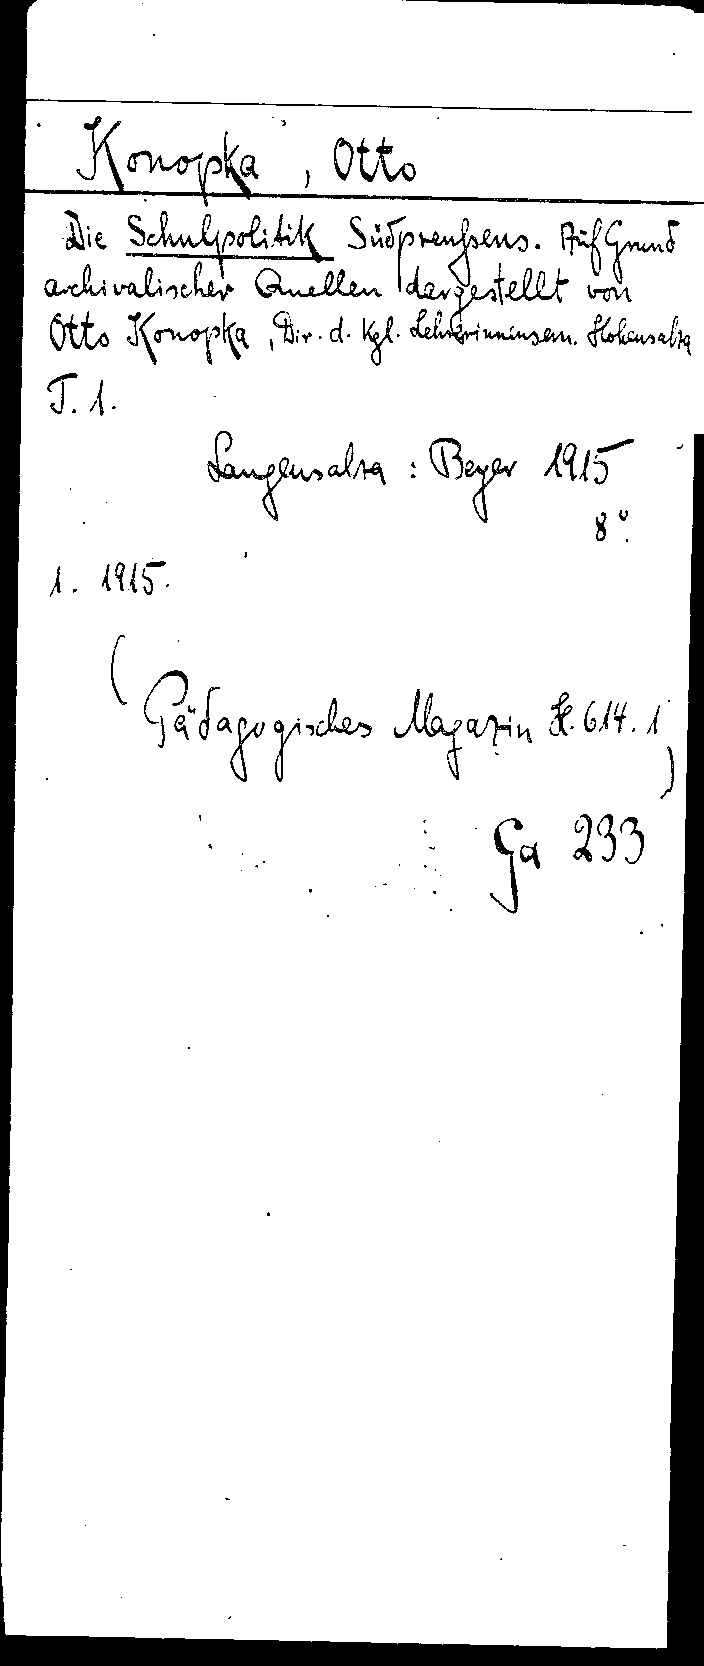 Konopka, Otto
Die Schulpolitik Südpreußens. Auf Grund
archivalischer Quellen dargestellt von
Otto Konopka, Dir. d. Kgl. Lehrerinninsem. Hohensalza
T. 1.
Langensalza: Beyer 1915
8°.
1. 1915.
(Pädagogisches Magazin H. 614. 1)
Ga 233